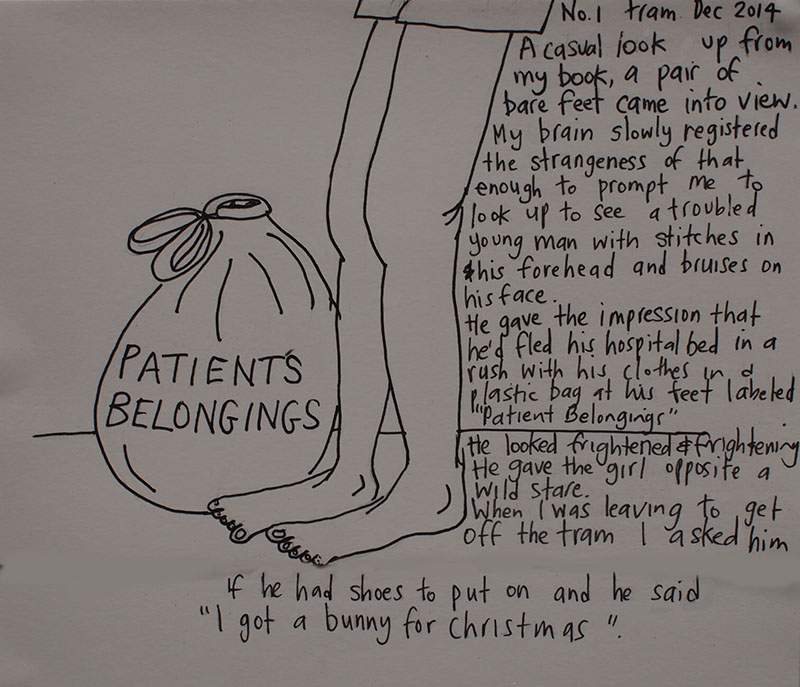 No.1 tram Dec 2014
A casual look up from
my book, a pair of
bare feet came into view.
My brain slowly registered
the strangeness of that
enough to prompt me to
look up to see a troubled
young man with stitches in
his forehead and bruises on
his face.
He gave the impression that
he'd fled his hospital bed in a
rush with his clothes in a
plastic bag at his feet labeled
"Patient Belongings"
He looked frightened & frightening
He gave the girl opposite a
wild stare.
When I was leaving to get
off the tram I asked him
if he had shoes to put on and he said
"I got a bunny for Christmas".
PATIENT'S
BELONGINGS